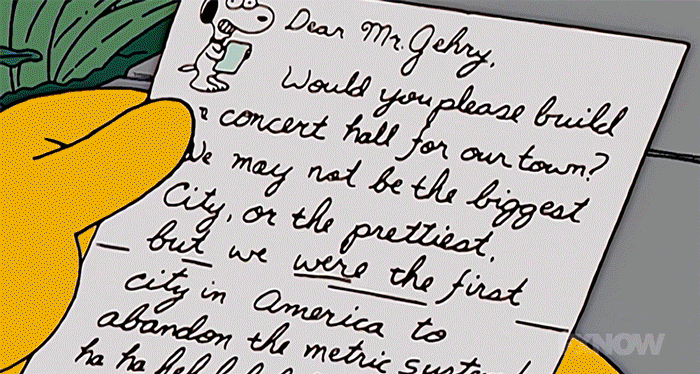 Dear Mr. Gehry,
Would you please build
a concert hall for our town?
We may not be the biggest
City, or the prettiest,
but we were the first
city in America to
abandon the metric system!
ha ha
XNOW